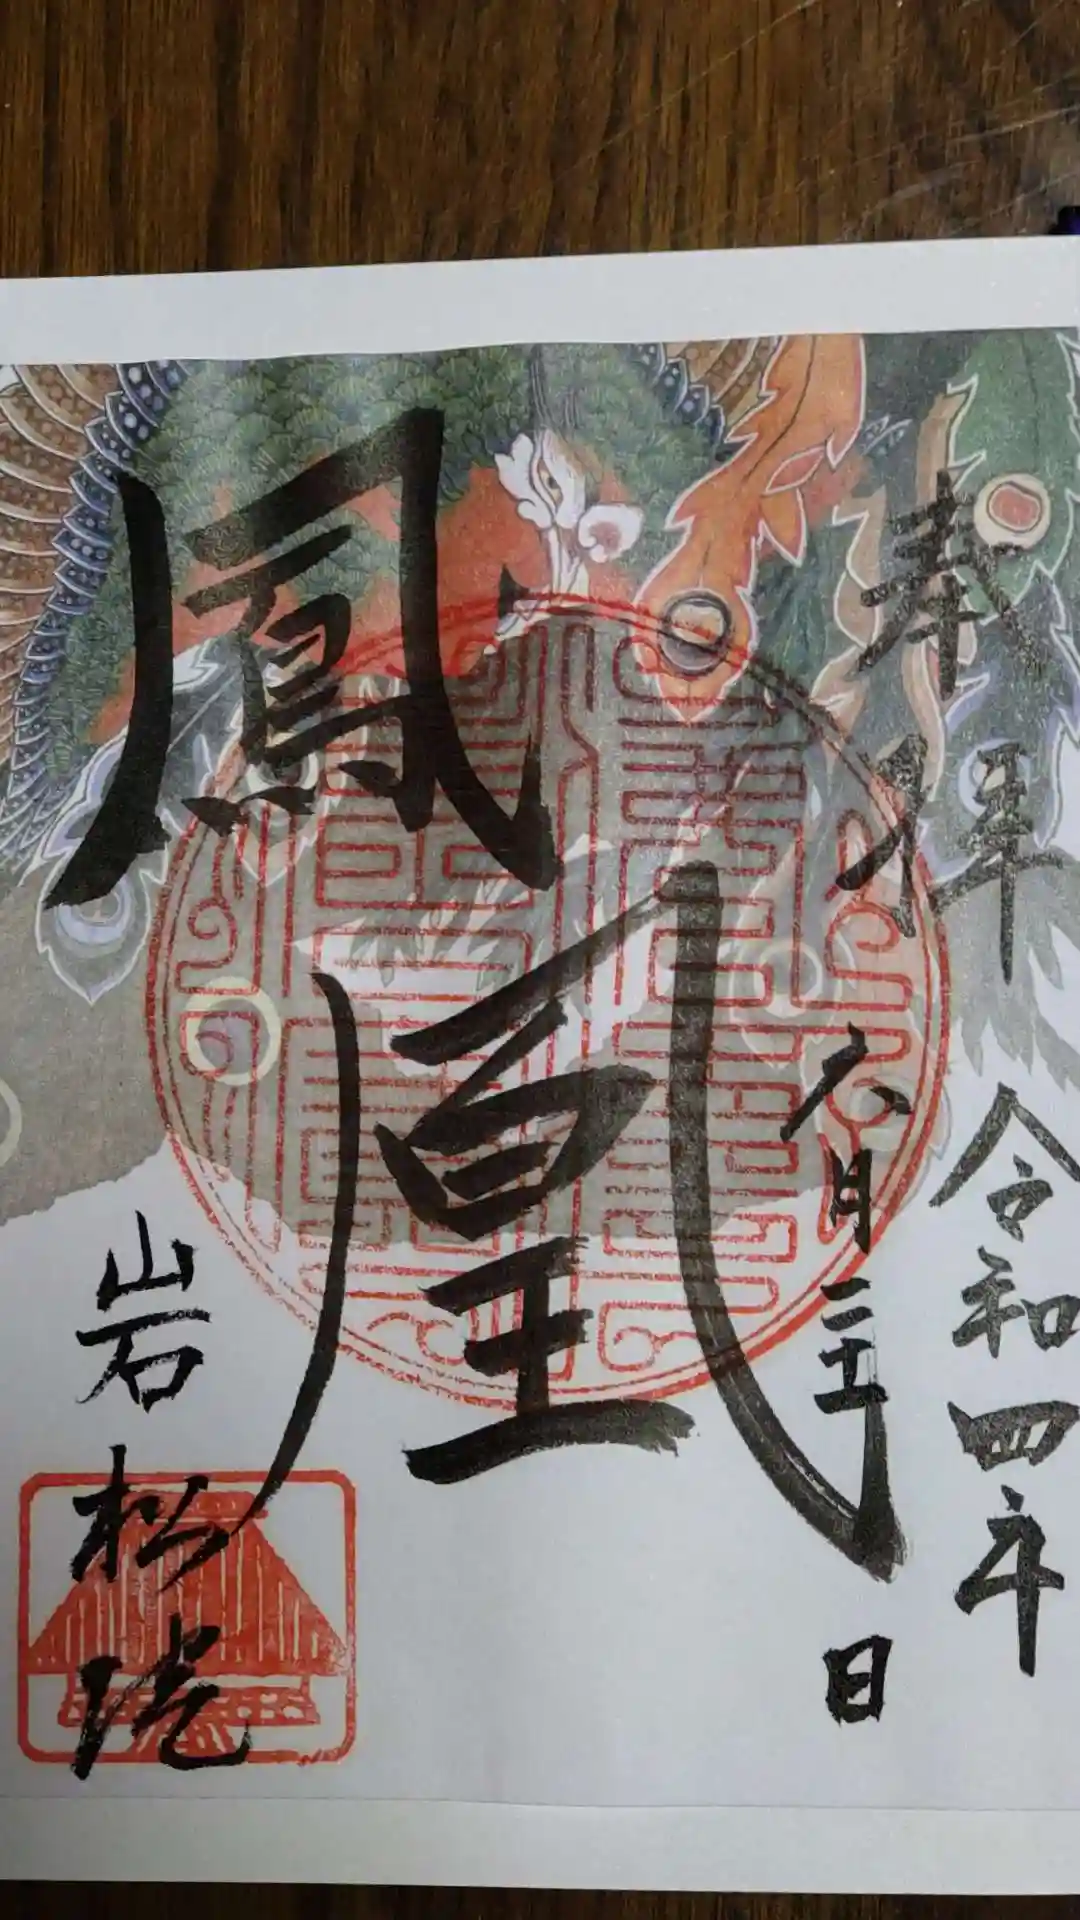 奉拝
令和四年
六月二五日
鳳凰
岩松院